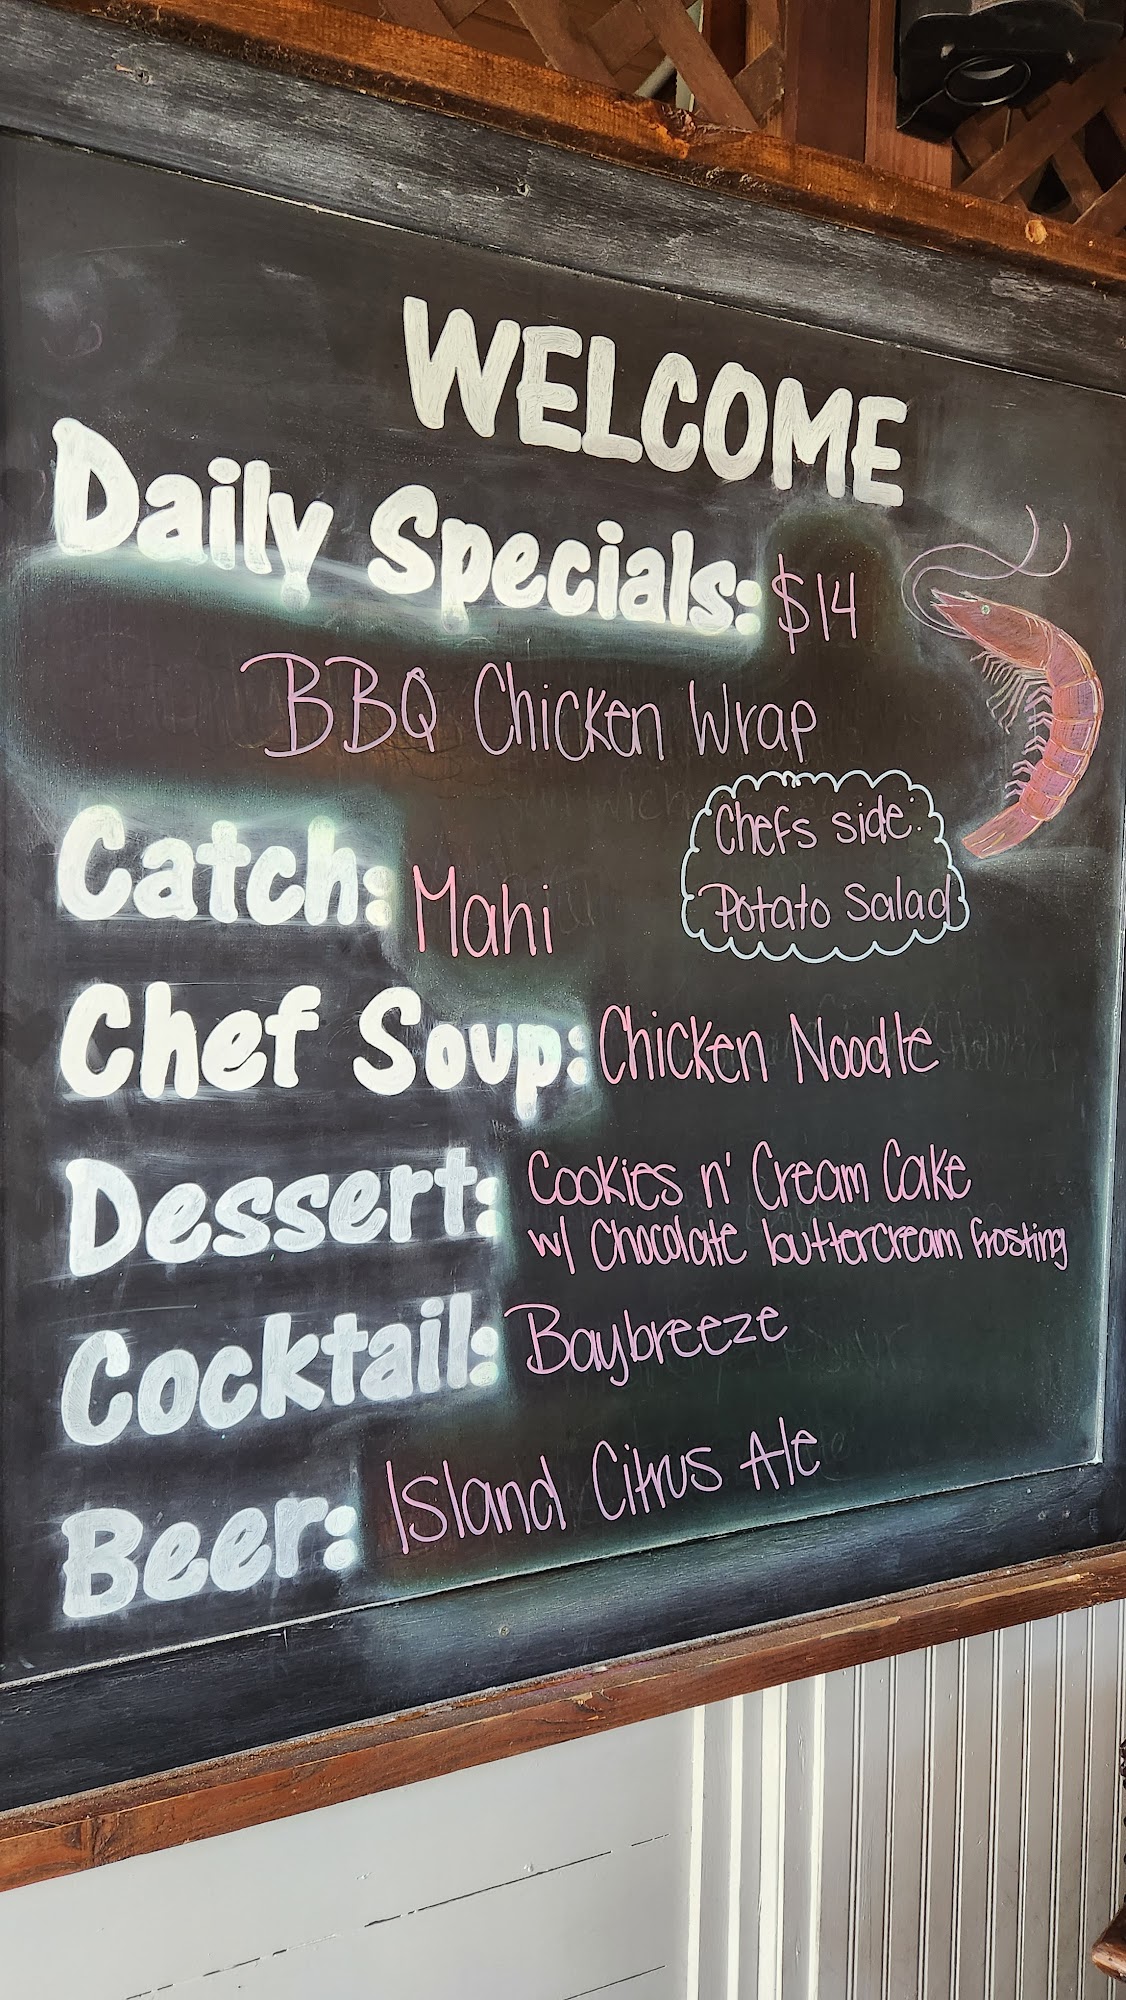 WELCOME
Daily Specials: $14
BBQ Chicken Wrap
Chefs side:
Potato Salad
Catch: Mahi
Chef Soup: Chicken Noodle
Dessert: Cookies n' Cream Cake
w/ Chocolate buttercream frosting
Cocktail: Baybreeze
Beer: Island Citrus Ale